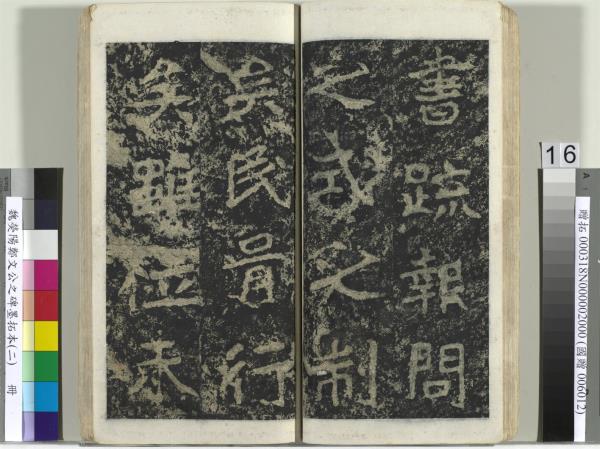 書疏報問
之式之制
民胥行
矣雖位未
魏滎陽鄭文公之碑墨拓本(二) 冊
16
A
贈拓 000318N000002000 (國贈 006012)